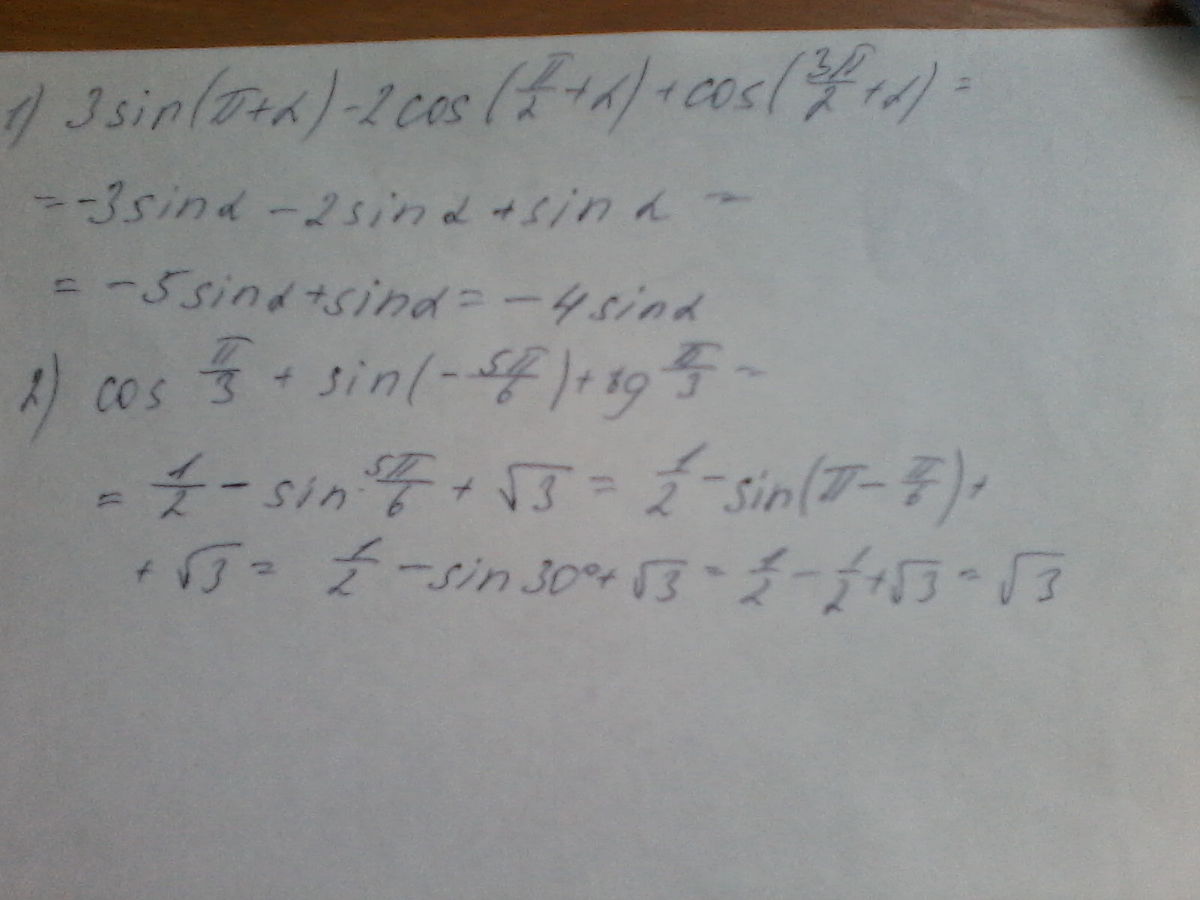 1) 3sin(π+α)-2cos(π/2+α)+cos(3π/2+α)=
=-3sinα-2sinα+sinα=
=-5sinα+sinα=-4sinα
2) cos π/3 + sin(-5π/6)+tg π/3=
= 1/2 - sin 5π/6 + √3 = 1/2 - sin(π-π/6)+
+√3= 1/2 - sin30°+√3=1/2-1/2+√3=√3